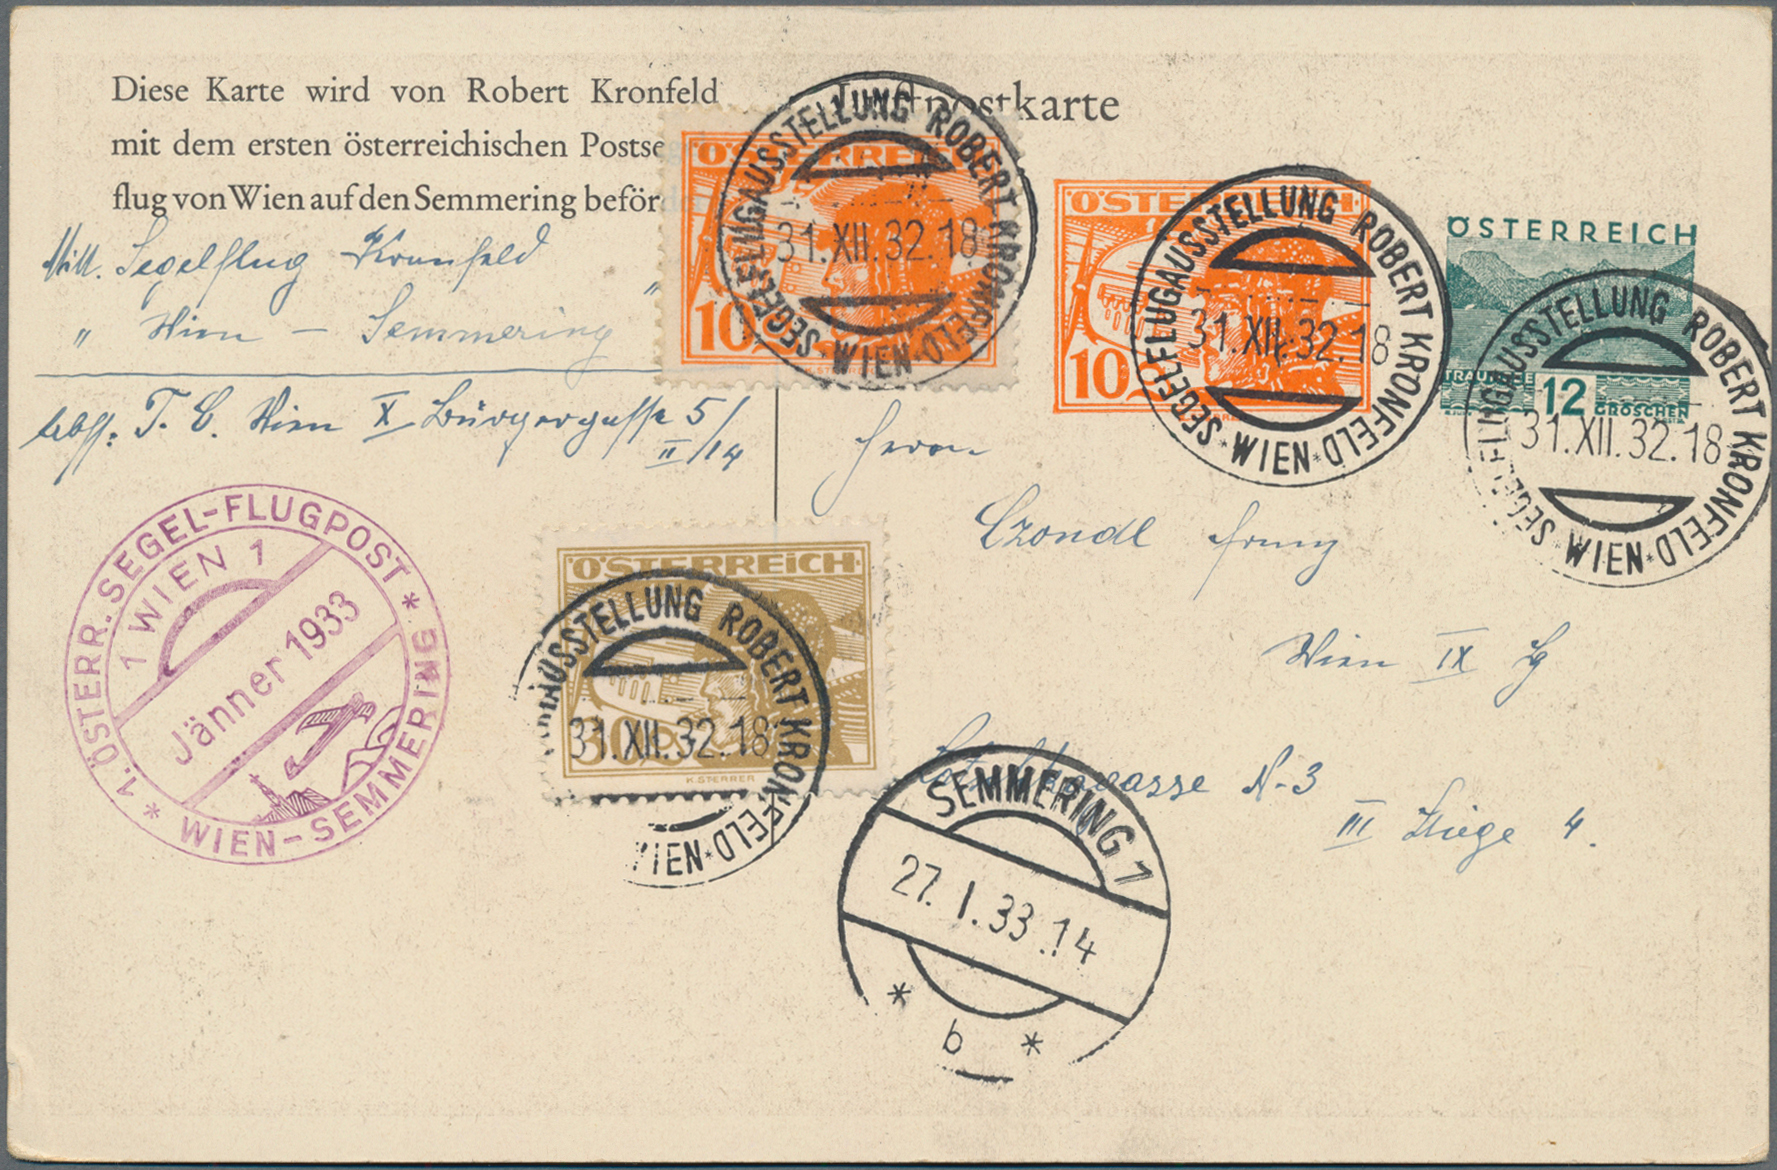 Diese Karte wird von Robert Kronfeld
mit dem ersten österreichischen Postse
flug von Wien auf den Semmering beför
Luftpostkarte
Mitt. Segelflug Kronfeld
" Wien – Semmering "
Abs: T. E. Wien X Bürgergasse 5/
II/14
ÖSTERREICH
10
SEGELFLUGAUSSTELLUNG ROBERT KRONFELD
31.XII.32.18
* WIEN *
ÖSTERREICH
10
SEGELFLUGAUSSTELLUNG ROBERT KRONFELD
31.XII.32.18
* WIEN *
ÖSTERREICH
TRAUNSEE
12 GROSCHEN
SEGELFLUGAUSSTELLUNG ROBERT KRONFELD
31.XII.32.18
* WIEN *
Herrn
Czondl Franz
Wien IX
N-3
III Stiege 4.
* 1. ÖSTERR. SEGEL-FLUGPOST *
1 WIEN 1
Jänner 1933
WIEN–SEMMERING
ÖSTERREICH
30
K. STERRER
AUSSTELLUNG ROBERT KRONFELD
31.XII.32.18
WIEN *
SEMMERING 1
27. I. 33 .14
* b *